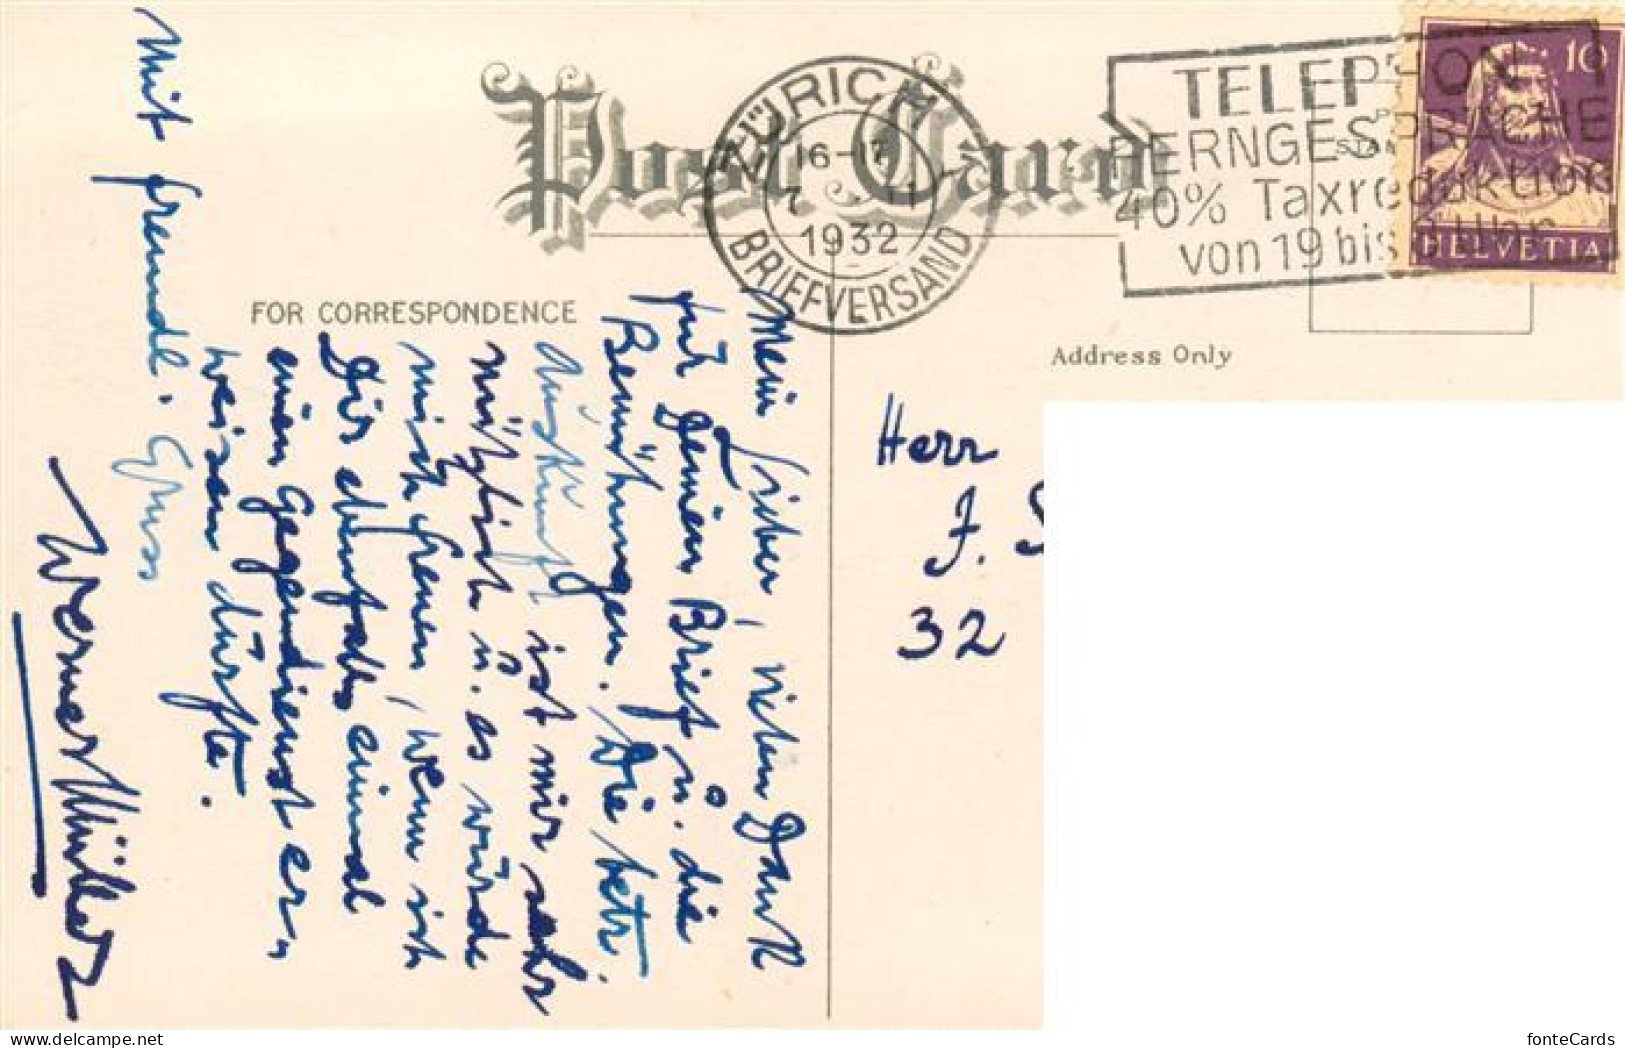 Post Card
ZÜRICH 1
16-17
7 11
1932
BRIEFVERSAND
TELEPHON
FERNGESPRÄCHE
40% Taxreduktion
von 19 bis 8 Uhr
10
HELVETIA
FOR CORRESPONDENCE
Address Only
Mein Lieber, vielen Dank
für Deinen Brief u. die
Bemühungen. Die betr.
Auskunft ist mir sehr
nützlich u. es würde
mich freuen, wenn ich
Dir ebenfalls einmal
einen Gegendienst er-
weisen dürfte.
Mit freundl. Gruss
Werner Müller
Herr
J.
32
fonteCards